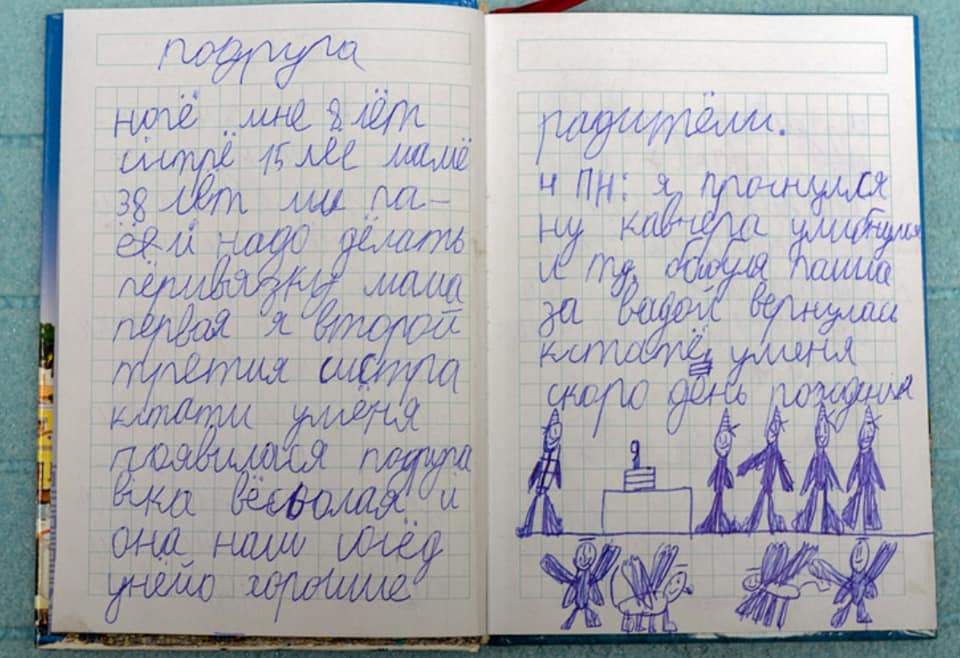 подруга
ногё мне 8 лёт
систрё 15 лёе мамё
38 лет мы па-
ёёй надо дёлать
пёривязку мама
первая я второй
третия систра
кстати умёня
появилася подруга
віка вёсьолая и
она наш сосёд
унёйо хорошие
радитёли.
ч ПН: я проснулся
ну кавчера улибнулся
и тд бабуля пашла
за вадой вернулась
кстатё уменя
скоро день рождения
9